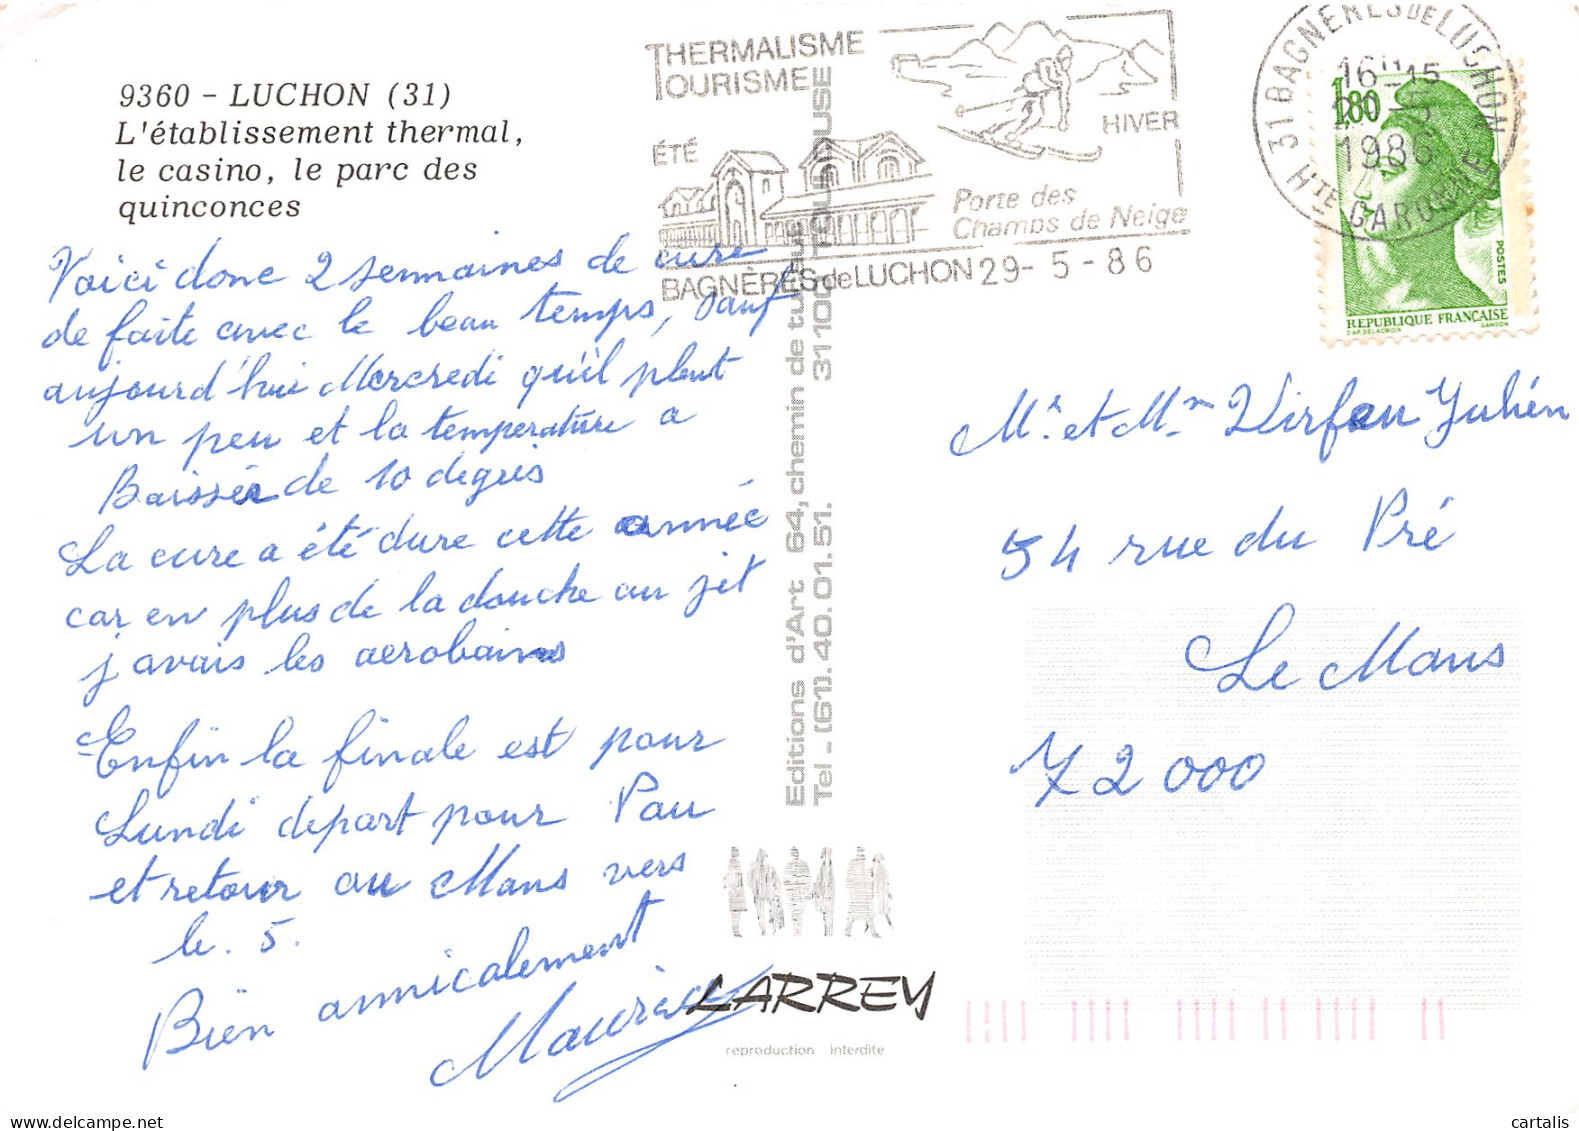 9360 - LUCHON (31)
L'établissement thermal,
le casino, le parc des
quinconces
Voici donc 2 semaines de cure
de faite avec le beau temps, sauf
aujourd'hui Mercredi qu'il pleut
un peu et la température a
Baissée de 10 degrés
La cure a été dure cette année
car en plus de la douche au jet
j'avais les aerobains
Enfin la finale est pour
Lundi depart pour Pau
et retour au Mans vers
le. 5.
Bien amicalement
Maurice
THERMALISME
TOURISME
ÉTÉ
HIVER
Porte des
Champs de Neige
BAGNÈRES de LUCHON 29-5-86
31 BAGNERES DE LUCHON
16H15
1986
HTE GARONNE
1,80
POSTES
REPUBLIQUE FRANÇAISE
D'AP. DELACROIX GANDON
Editions d'Art 64, chemin de
Tel - (61).40.01.51. 31100 TOULOUSE
LARREY
reproduction interdite
Mr. et Mm Julién
54 rue du Pré
Le Mans
72000
cartalis | delcampe.net